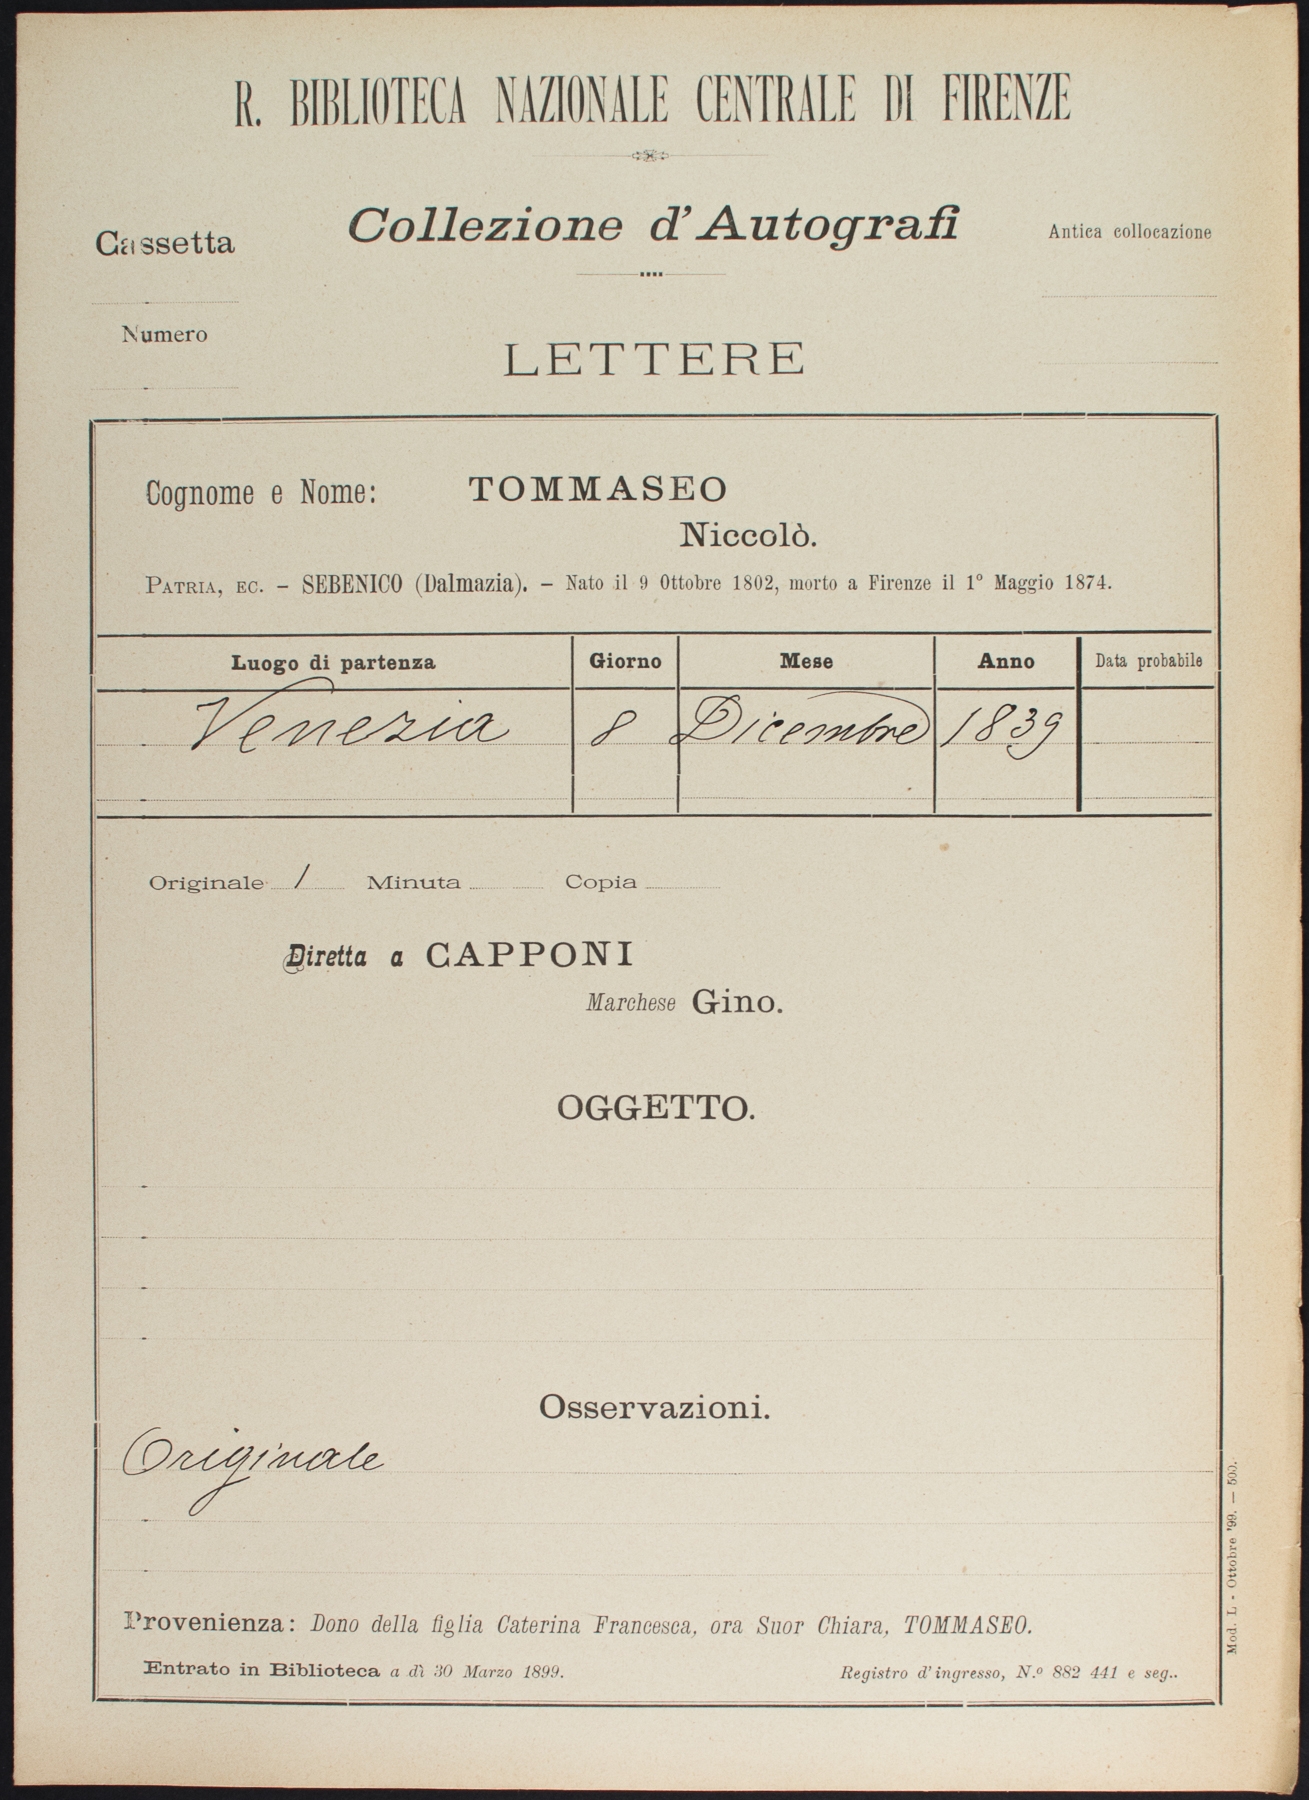 R. BIBLIOTECA NAZIONALE CENTRALE DI FIRENZE
Collezione d' Autografi
Cassetta
Antica collocazione
Numero
LETTERE
Cognome e Nome: TOMMASEO
Niccolò.
PATRIA, EC. – SEBENICO (Dalmazia). – Nato il 9 Ottobre 1802, morto a Firenze il 1º Maggio 1874.
Luogo di partenza Giorno Mese Anno Data probabile
Venezia 8 Dicembre 1839
Originale / Minuta Copia
Diretta a CAPPONI
Marchese Gino.
OGGETTO.
Osservazioni.
Originale
Provenienza: Dono della figlia Caterina Francesca, ora Suor Chiara, TOMMASEO.
Entrato in Biblioteca a dì 30 Marzo 1899. Registro d'ingresso, N.º 882 441 e seg..
Mod. L - Ottobre '99. — 500.